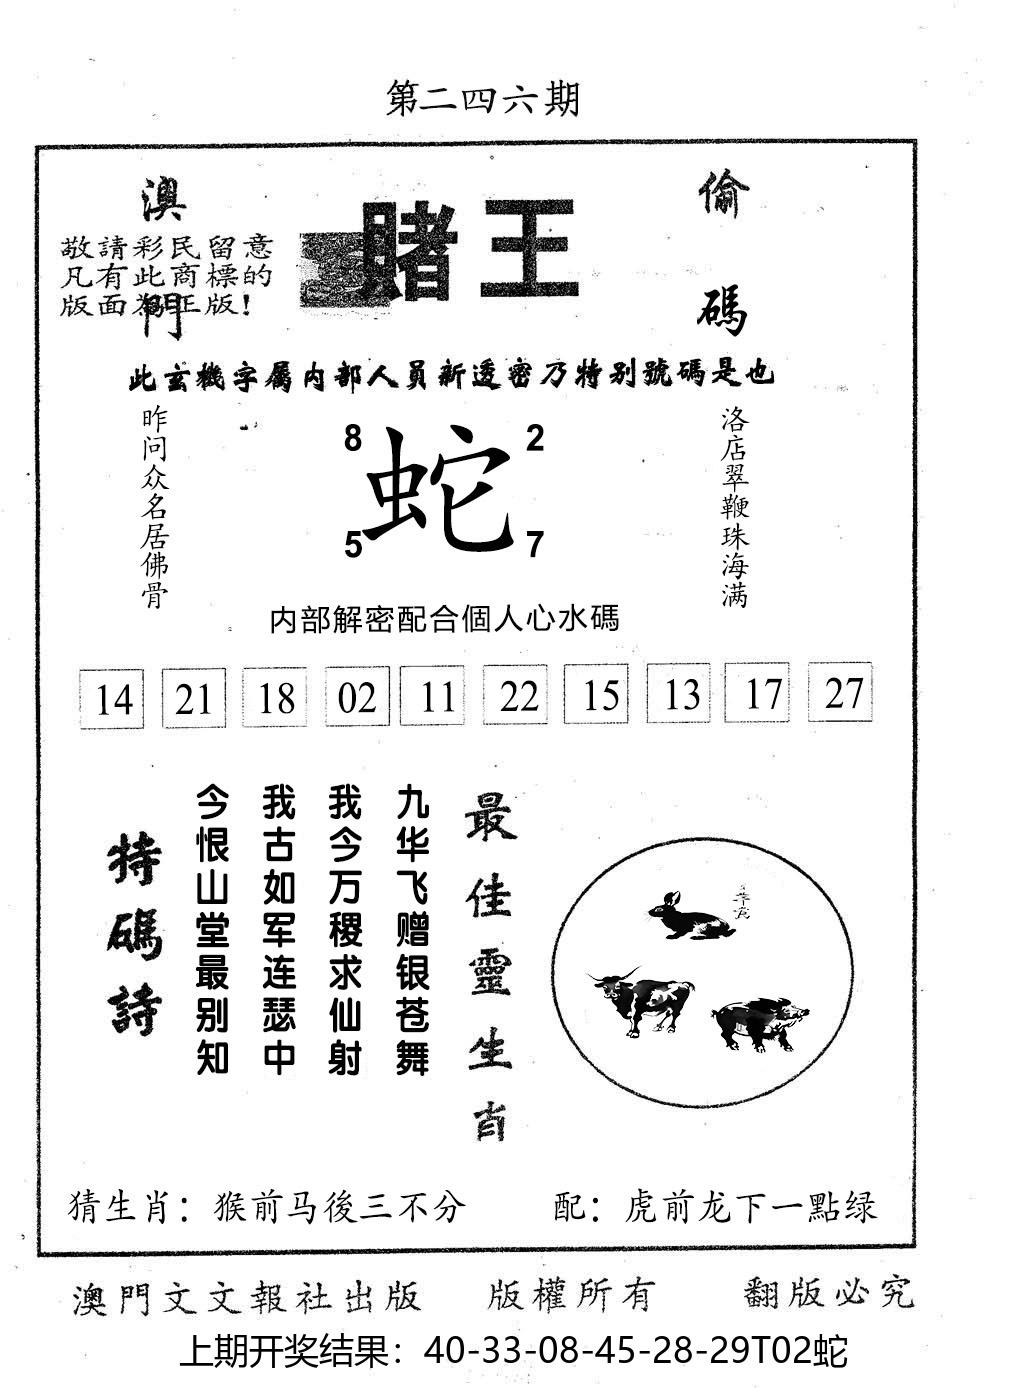 第二四六期
澳門
賭王
偷碼
敬請彩民留意
凡有此商標的
版面為正版!
此玄機字屬内部人員新透密乃特别號碼是也
昨问众名居佛骨
8 2
蛇
5 7
洛店翠鞭珠海满
内部解密配合個人心水碼
14 21 18 02 11 22 15 13 17 27
特碼詩
今恨山堂最别知
我古如军连瑟中
我今万稷求仙射
九华飞赠银苍舞
最佳靈生肖
猜生肖：猴前马後三不分 配：虎前龙下一點绿
澳門文文報社出版 版權所有 翻版必究
上期开奖结果：40-33-08-45-28-29T02蛇